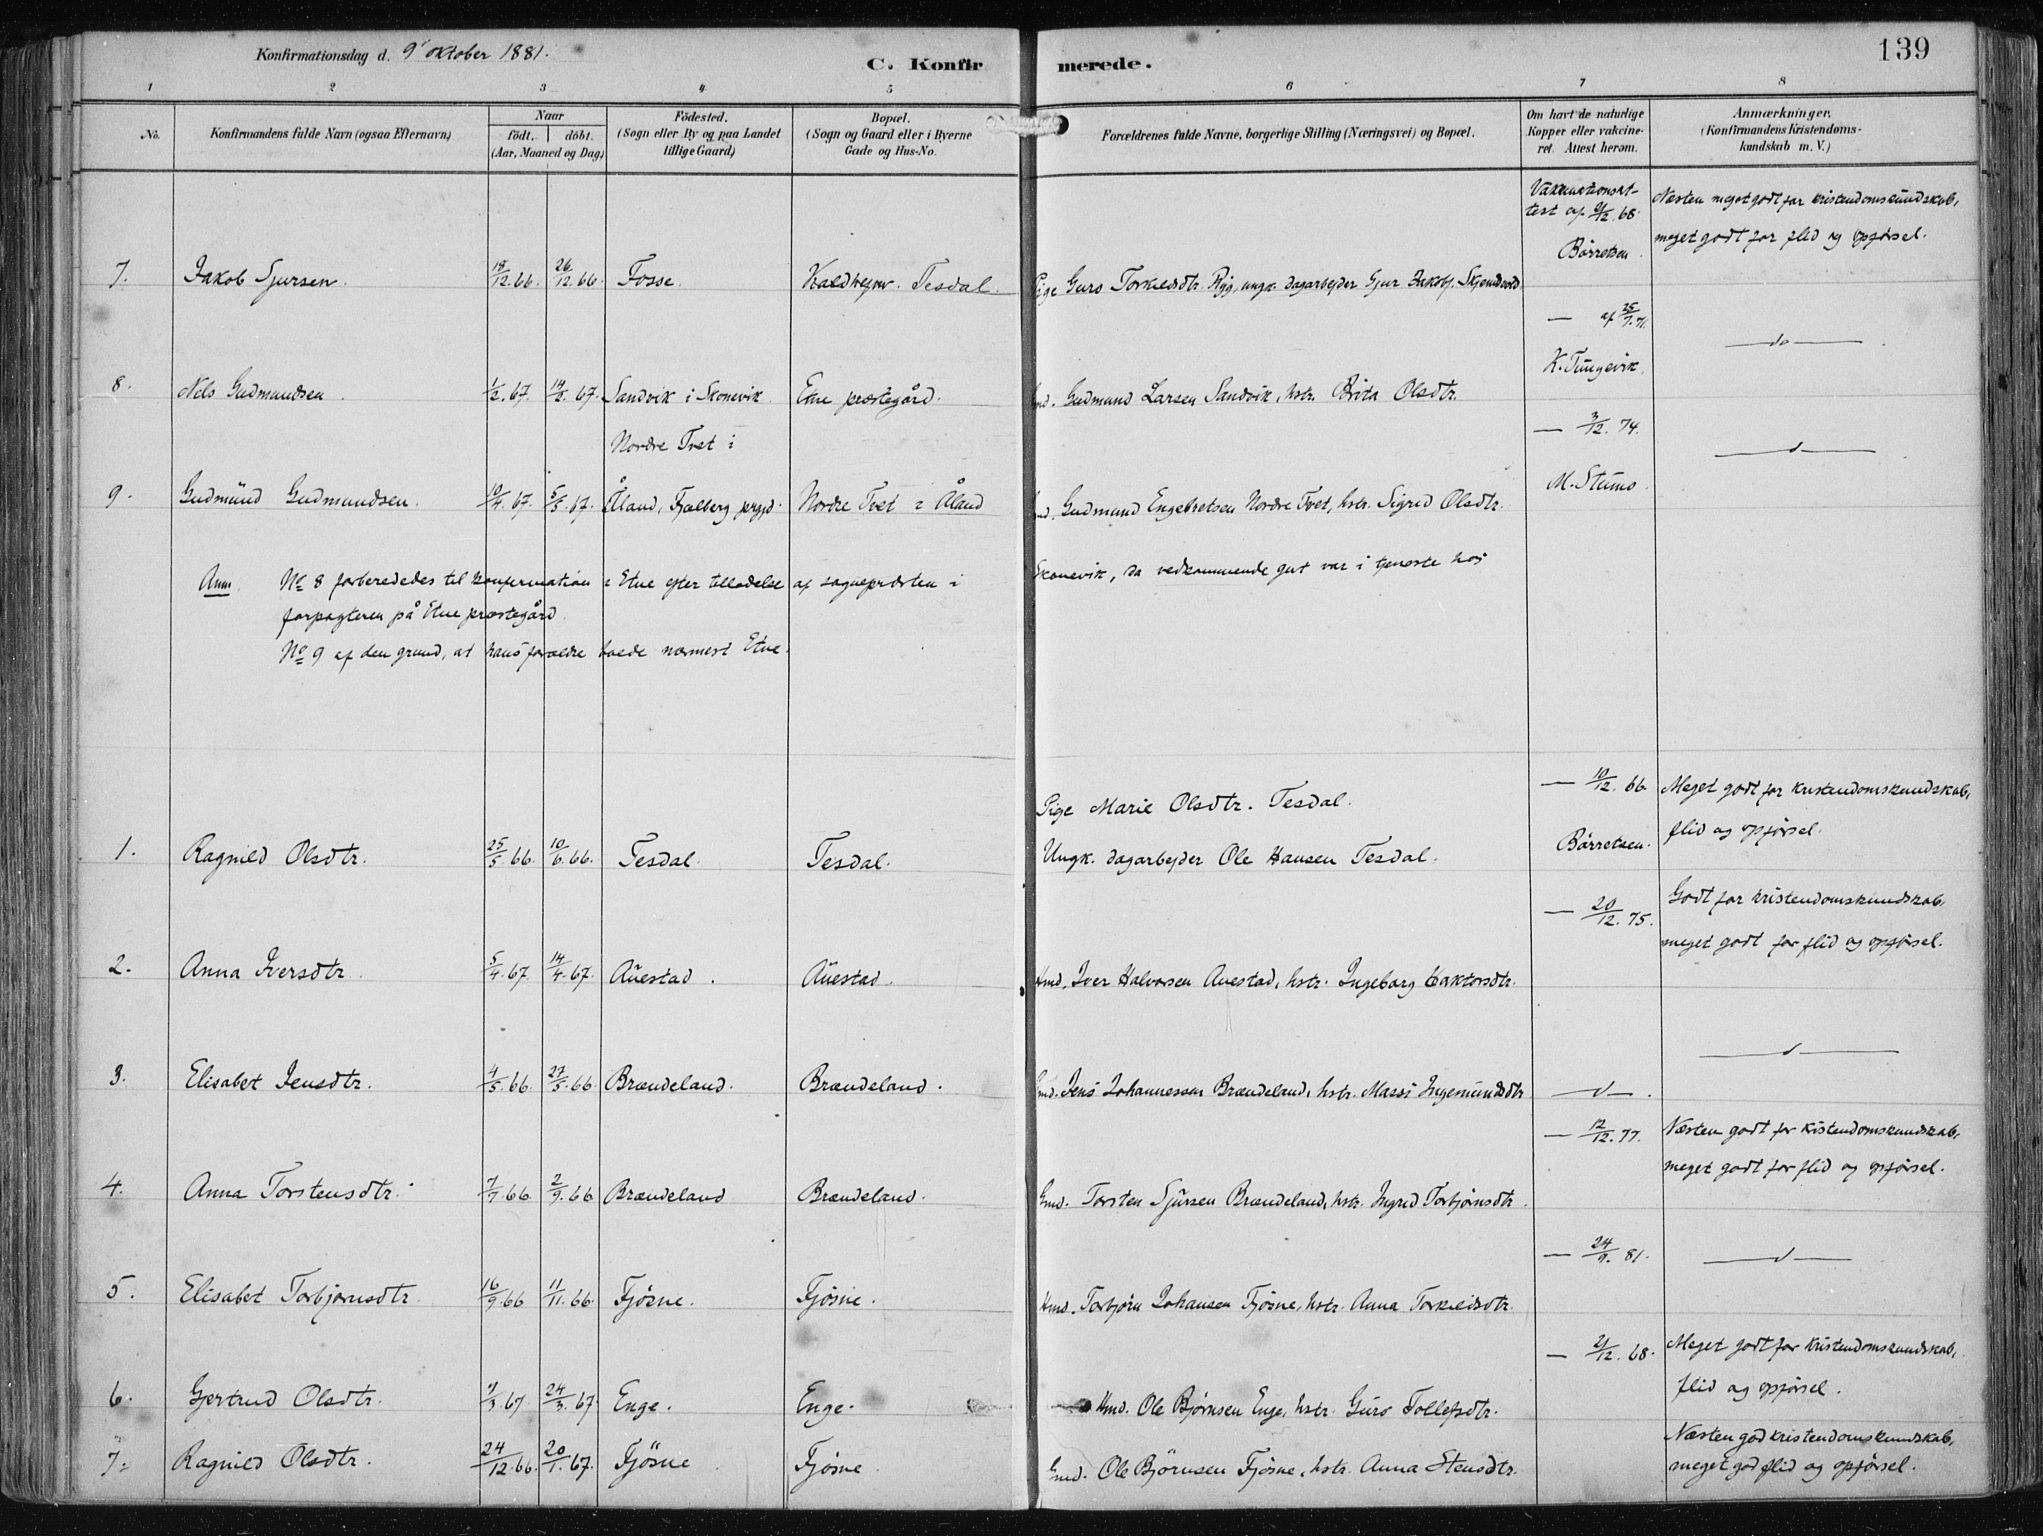 Konfirmationsdag d. 9' oktober 1881.
C. Konfirmerede.
139
1 2 3 4 5 6 7 8
No.
Konfirmandens fulde Navn (ogsaa Efternavn)
Naar
födt. döbt.
(Aar, Maaned og Dag)
Födested.
(Sogn eller By og paa Landet
tillige Gaard)
Bopæl.
(Sogn og Gaard eller i Byerne
Gade og Hus-No.
Forældrenes fulde Navne, borgerlige Stilling (Næringsvei) og Bopæl.
Om havt de naturlige
Kopper eller vakcine-
ret. Attest herom.
Anmærkninger.
(Konfirmandens Kristendoms-
kundskab m. V.)
Vakcinationsat-
test af 21/12 68.
Næsten meget godt for kristendomskundskab,
meget godt for flid og opførsel.
Børretsen
7. Jakob Sjursen. 18/12.66. 26/12.66. Fosse. Tesdal. Pige Guro Torkildsdtr. Rygg, ungk. dagarbejder Sjur Jakobs.
— af 25/7.71.
— do —
K. Tungevik.
8. Nils Gudmundsen. 1/2.67. 14/2.67. Sandvik i Skonevik. Etne præstegård. Gmd. Gudmund Larsen Sandvik, hstr. Brita Olsdtr.
— 3/12.74.
Nordre Tvet i
— d —
M. Stumo.
9. Gudmund Gudmundsen. 10/4.67. 5/5.67. Åland, Fjælberg prgjd. Nordre Tvet i Åland Gmd. Gudmund Engebretsen Nordre Tvet, hstr. Sigrid Olsdtr.
Anm. No 8 forberededes til konfirmation i Etne efter tilladelse af sognepræsten i Skonevik, da vedkommende gut var i tjeneste hos
forpagteren på Etne præstegård.
No 9 af den grund, at hans forældre boede nærmest Etne.
— 10/12.66.
Meget godt for kristendomskundskab,
Pige Marie Olsdtr. Tesdal.
flid og opførsel.
1. Ragnild Olsdtr. 25/5.66. 10/6.66. Tesdal. Tesdal. Ungk. dagarbejder Ole Hansen Tesdal. Børretsen.
Godt for kristendomskundskab,
— 20/12.75.
meget godt for flid og opførsel.
2. Anna Iversdtr. 5/4.67. 14/4.67. Auestad. Auestad. Hmd. Iver Halvorsen Auestad, hstr. Ingeborg
— d —
3. Elisabet Jensdtr. 4/5.66. 27/5.66. Brændeland. Brændeland. Gmd. Jens Johannessen Brændeland, hstr. Massi Ingemundsdtr — d —.
— 12/12.77.
Næsten godt for kristendomskundskab,
meget godt for flid og opførsel.
4. Anna Torstensdtr. 7/7.66. 2/9.66. Brændeland Brændeland. Gmd. Torsten Sjursen Brændeland, hstr. Ingrid Torbjørnsdtr.
— 24/9.81.
— d —
5. Elisabet Torbjørnsdtr. 16/9.66 11/11.66. Fjøsne. Fjøsne. Hmd. Torbjørn Johansen Fjøsne, hstr. Anna Torkildsdtr.
— 21/12.68.
Meget godt for kristendomskundskab,
flid og opførsel.
6. Gjertrud Olsdtr. 24/3.67. Enge. Enge. Hmd. Ole Bjørnsen Enge, hstr. Guro Tollefsdtr.
Næsten god kristendomskundskab,
7. Ragnild Olsdtr. 24/12.66. 20/1.67. Fjøsne Fjøsne Gmd. Ole Bjørnsen Fjøsne, hstr. Anna Stensdtr. meget god flid og opførsel.